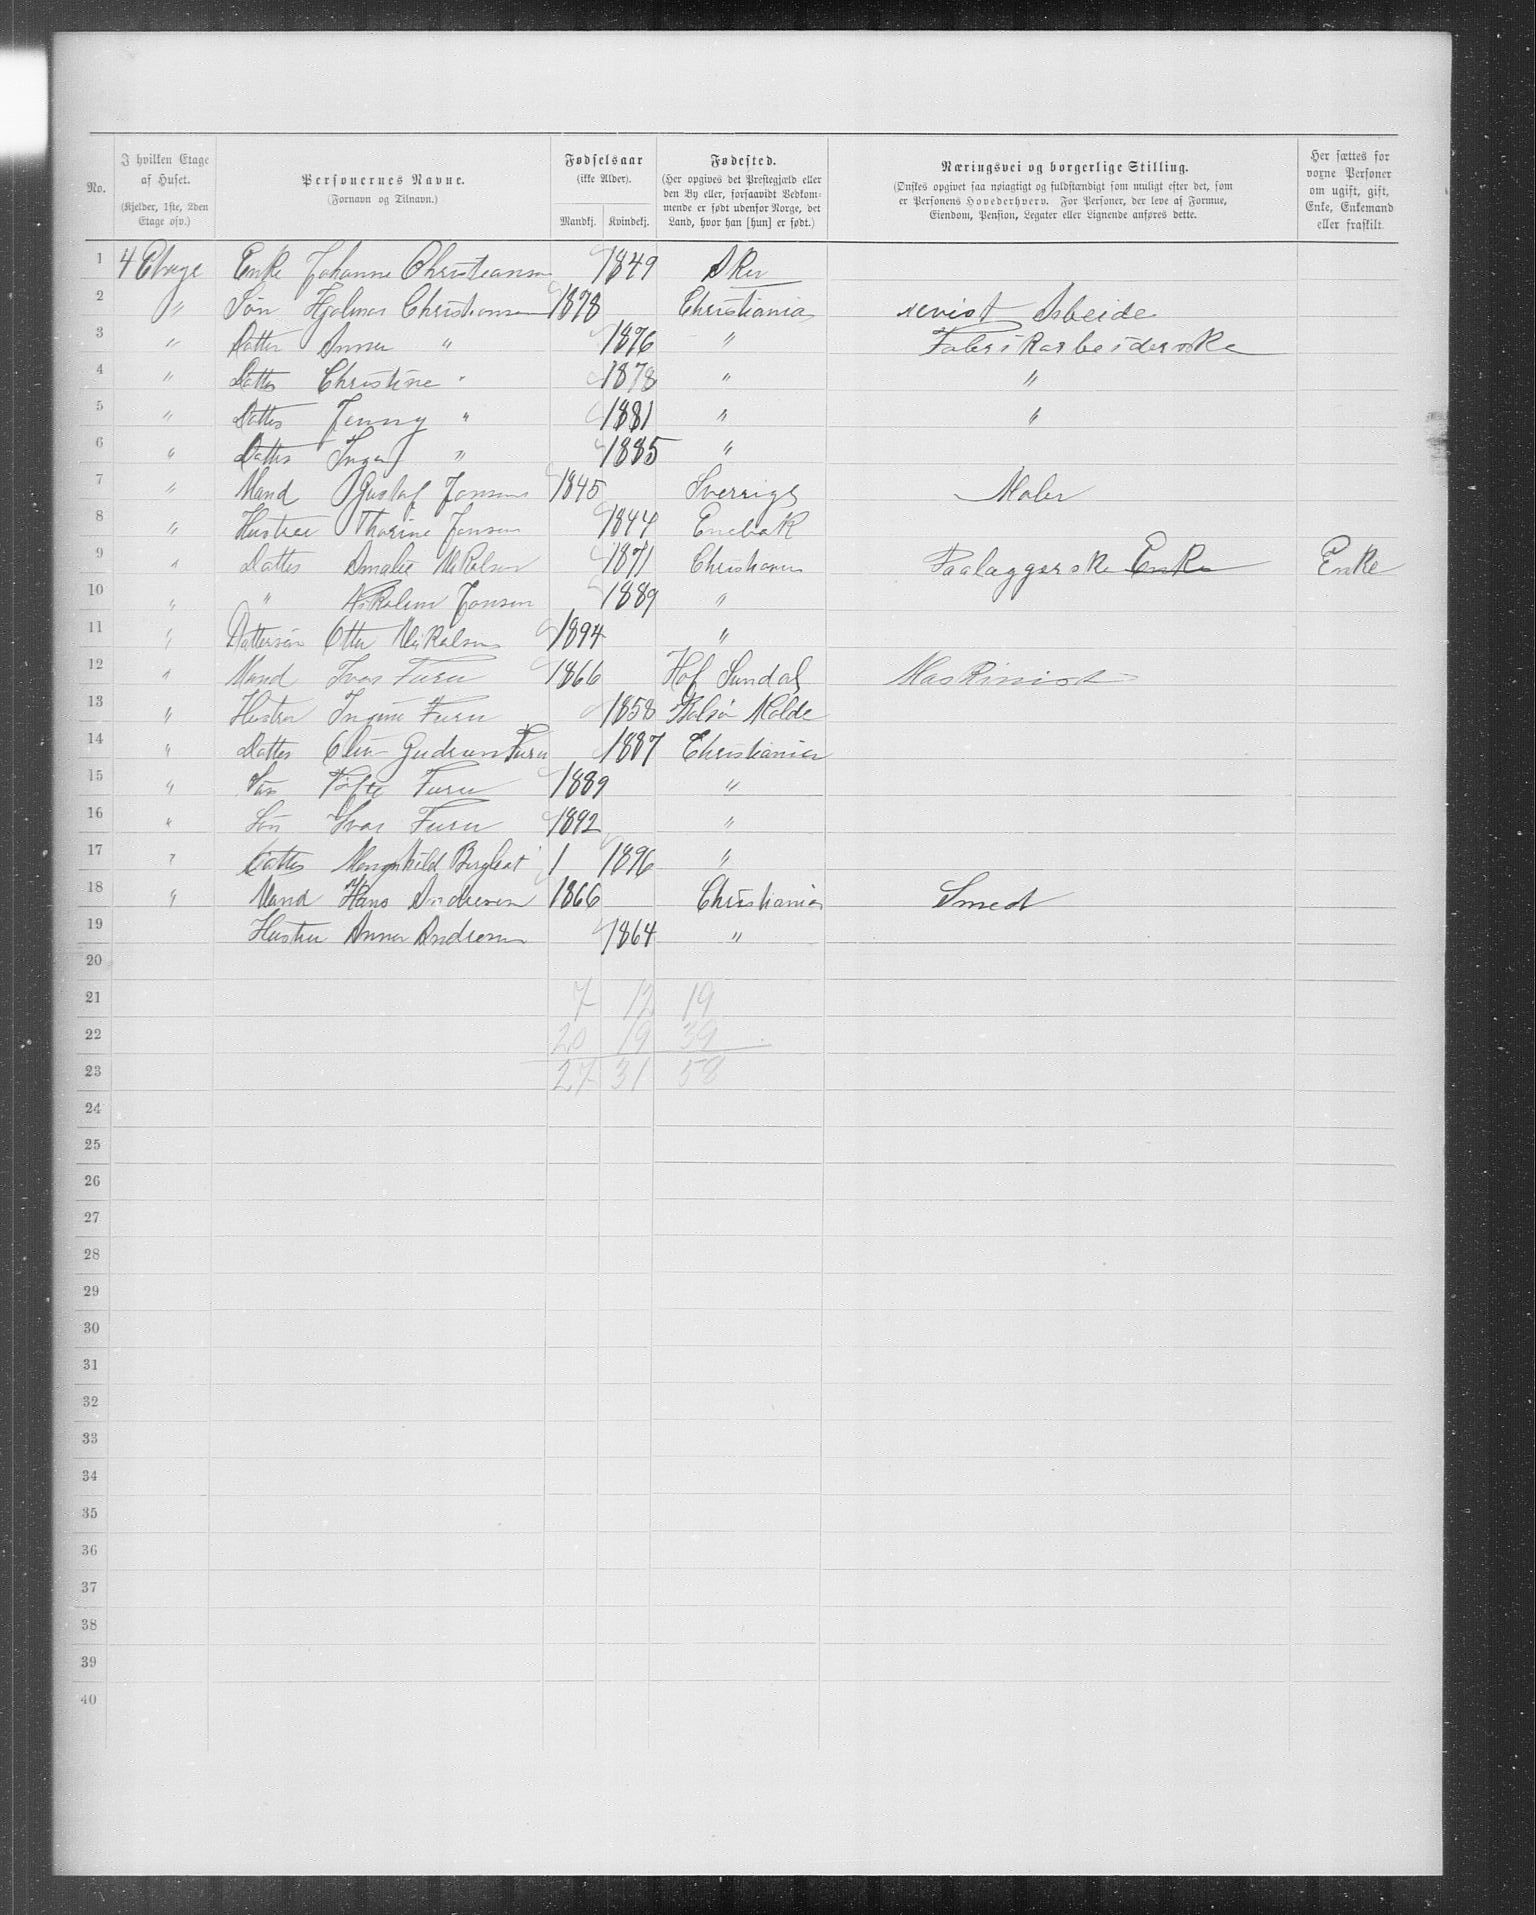 No.
I hvilken Etage af Huset.
(Kjelder, 1ste, 2den Etage osv.)
Personernes Navne.
(Fornavn og Tilnavn.)
Fødselsaar
(ikke Alder).
Mandkj. Kvindekj.
Fødested.
(Her opgives det Prestegjæld eller den By eller, forsaavidt Vedkommende er født udenfor Norge, det Land, hvor han [hun] er født.)
Næringsvei og borgerlige Stilling.
(Ønskes opgivet saa nøiagtigt og fuldstændigt som muligt efter det, som er Personens Hovederhverv. For Personer, der leve af Formue, Eiendom, Pension, Legater eller Lignende anføres dette.
Her sættes for voxne Personer om ugift, gift, Enke, Enkemand eller fraskilt.
1 4 Etage Enke Johanne Christiansen 1849 Aker
2 " Søn Hjalmar Christiansen 1878 Christiania Arbeide
3 " Datter Anna " 1876 " Fabrikarbeiderske
4 " Datter Christine " 1878 " "
5 " Datter Jenny " 1881 " "
6 " Datter Inga " 1885 "
7 " Mand Gustaf Jonsen 1845 Sverrige Maler
8 " Hustru Thorine Jonsen 1844 Enebak
9 " Datter Amalie Nikolsen 1871 Christiania Paalæggerske Enke Enke
10 " " Jonsen 1889 "
11 " Dattersøn Otto Nikolsen 1894 "
12 " Mand Ivar Furu 1866 Hof Sundal Maskinist
13 " Hustru Furu 1858 Bolsø Molde
14 " Datter Gudrun Furu 1887 Christiania
15 " Søn Tofte Furu 1889 "
16 " Søn Ivar Furu 1892 "
17 " Datter Bergliot 1 1896 "
18 " Mand Hans Andresen 1866 Christiania Smed
19 Hustru Anna Andresen 1864 "
20
21 7 12 19
22 20 19 39
23 27 31 58
24
25
26
27
28
29
30
31
32
33
34
35
36
37
38
39
40